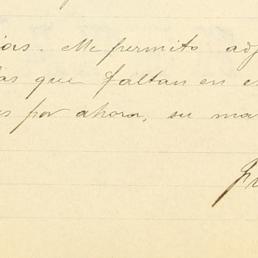 ias. Me permito adj
las que faltan en e
s por ahora, su ma
Fr